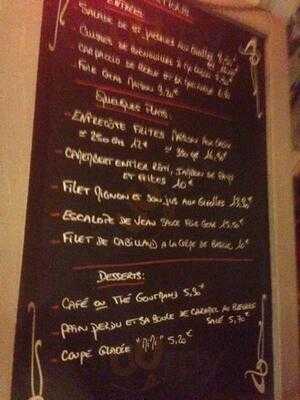 ENTRÉES
SALADE DE ST JACQUES AUX GIROLLES
CUISSES DE GRENOUILLES
CARPACCIO DE BOEUF ET SA
FOIE GRAS MAISON 9.20€
QUELQUES PLATS:
- ENTRECÔTE FRITES MAISON AUX CHOIX
≃ 250 GRS 12€ ≃ 350 GR 16,90€
- CAMEMBERT ENTIER RÔTI, JAMBON DE PAYS
ET FRITES 10€
- FILET MIGNON ET SON JUS AUX GIROLLES 13,90€
- ESCALOPE DE VEAU SAUCE FOIE GRAS 15.50€
- FILET DE CABILLAUD A LA CRÈME DE 10€
DESSERTS:
- CAFÉ OU THÉ GOURMAND 5,90€
- PAIN PERDU ET SA BOULE DE CARAMEL AU BEURRE
SALÉ 5,70€
- COUPE GLACÉE "MIMI" 5,20€